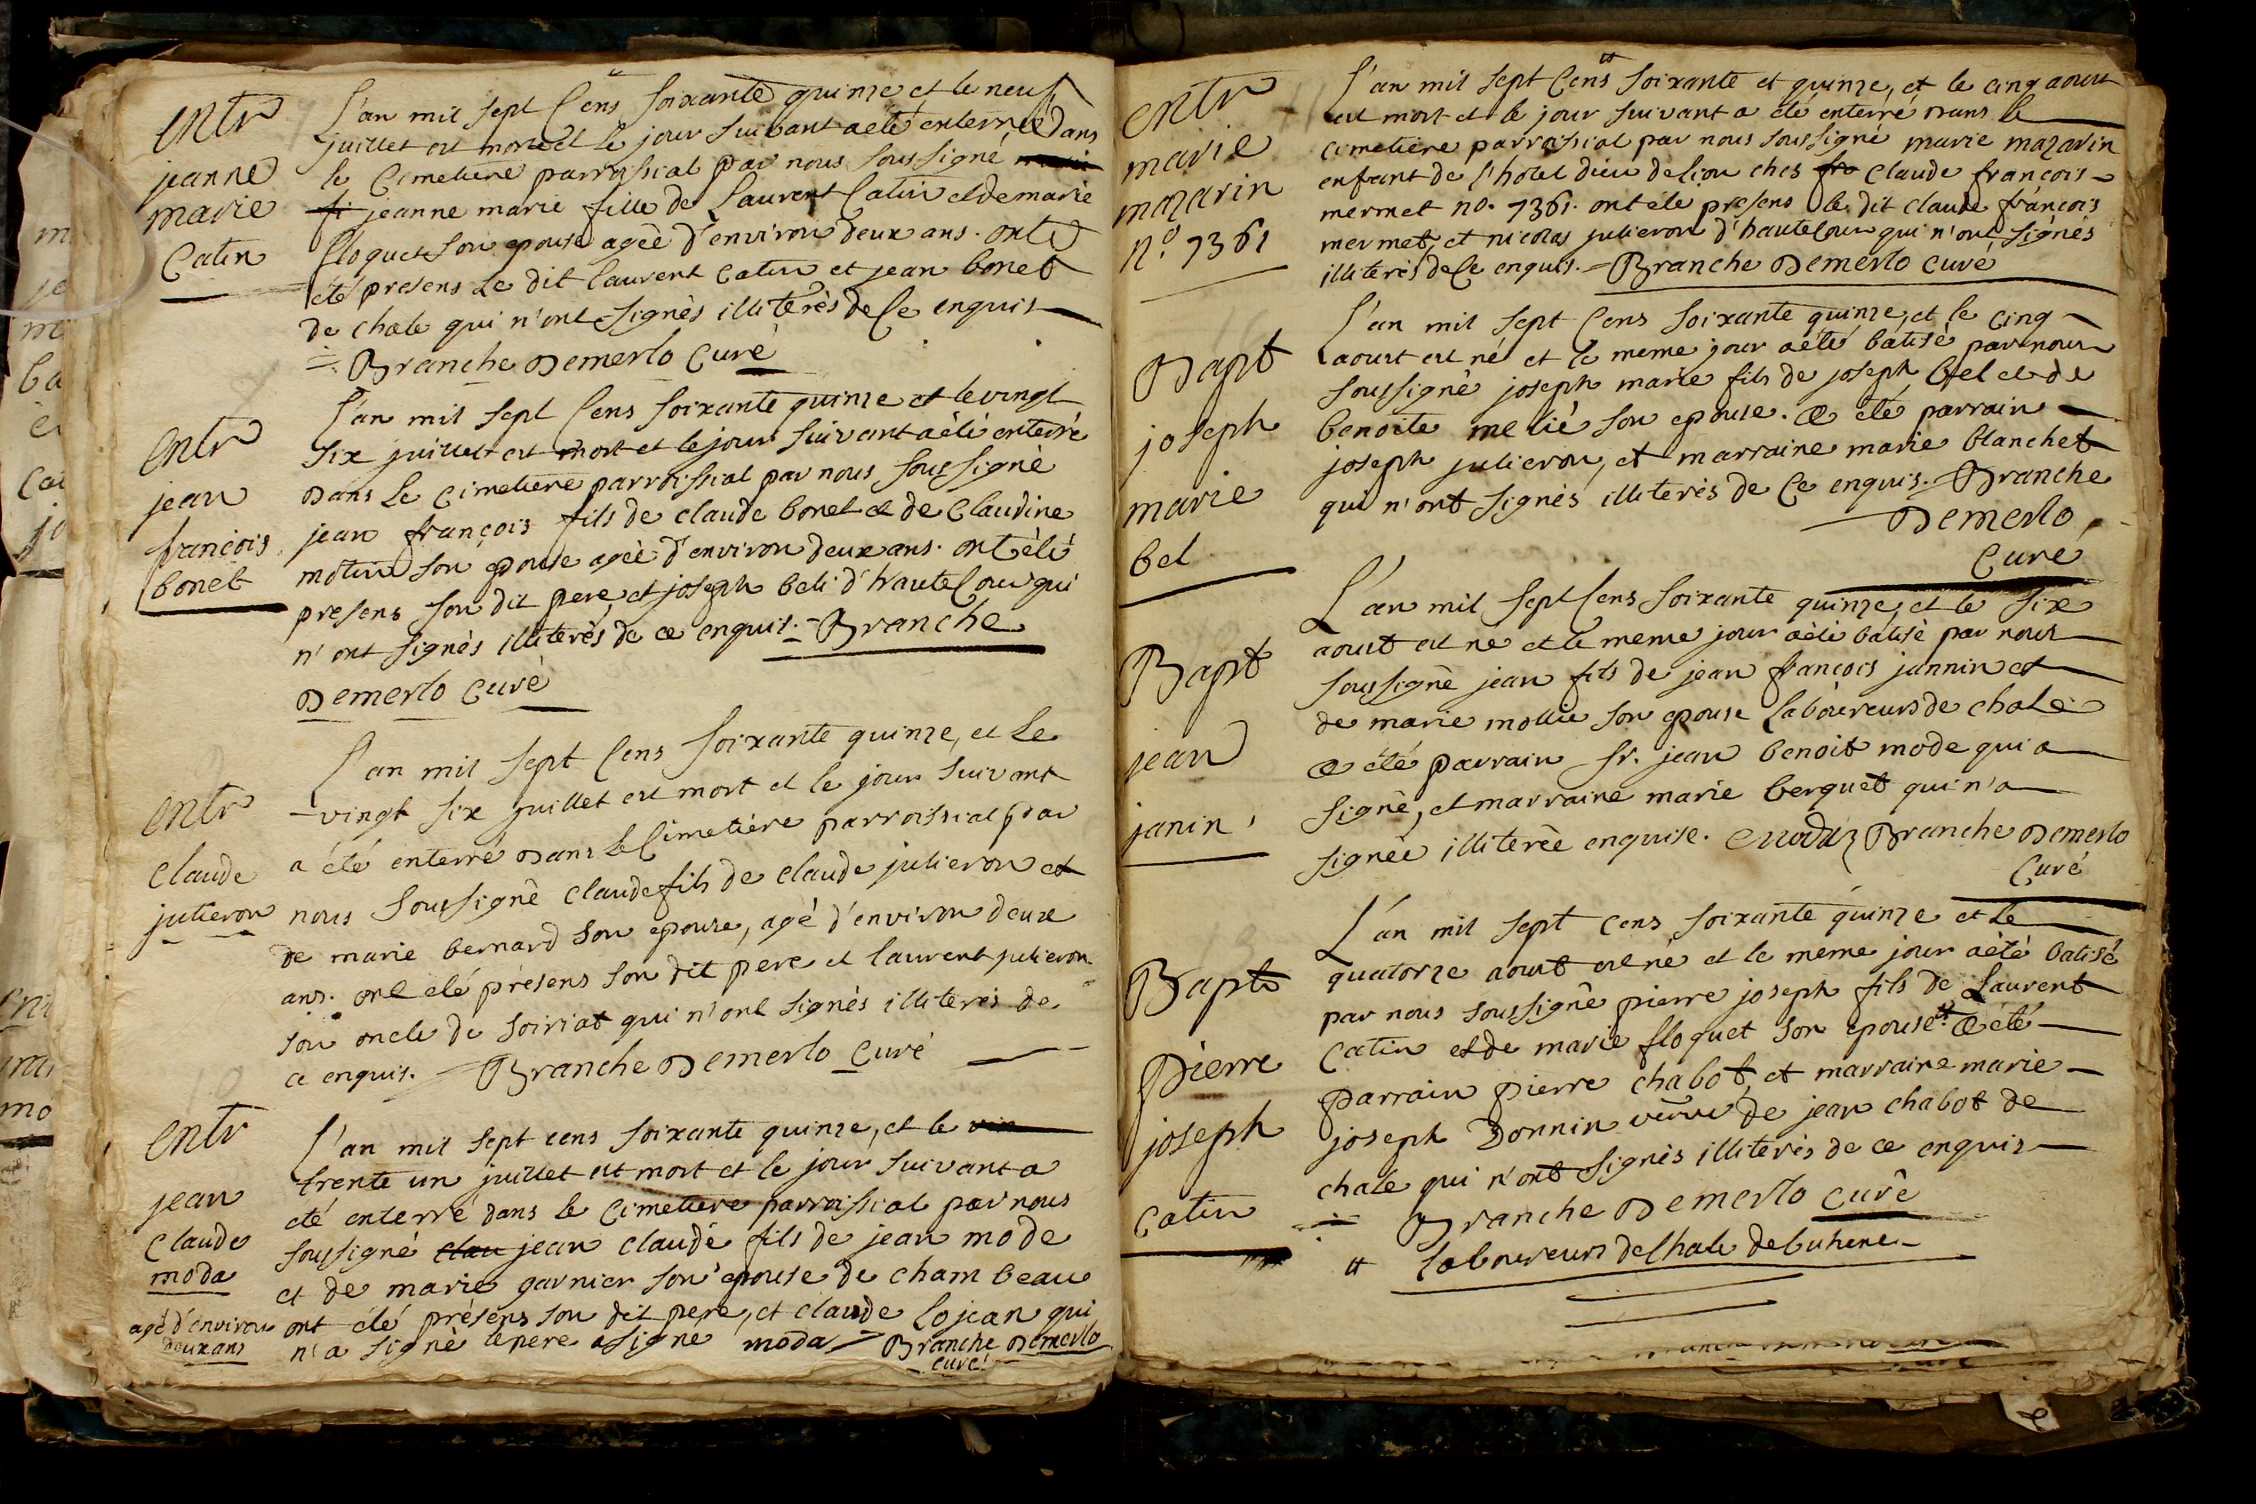 entr
jeanne
marie
Catin
L'an mil sept Cens soixante quinze et le neuf
juillet est morte et le jour suivant a eté enterrée dans
le Cimetiere parroissial par nous soussigné
jeanne marie fille de Laurent Catin et de marie
floquet son epouse agéè d'environ deux ans. ont
eté presens Le dit laurent catin et jean bonet
de chale qui n'ont signès illiterès de Ce enquis
Branche Demerlo Curé
entr
jean
françois
bonet
L'an mil sept Cens soixante quinze et le vingt
six juillet est mort et le jour suivant a èté enterré
dans Le cimetiere parroissial par nous soussignè
jean françois fils de claude bonet et de Claudine
motin son epouse agéè d'environ deux ans. ont èté
presens son dit pere et joseph beli d'hauteCour qui
n'ont signès illiterès de ce enquis. Branche
Demerlo Curè
entr
Claude
julieron
L'an mil sept Cens soixante quinze, et Le
vingt six juillet est mort et le jour suivant
a été enterré dans le Cimetière parroissial par
nous soussignè claude fils de claude julieron et
de marie bernard son epouse, agè d'environ deux
ans. ont eté présens son dit pere et laurent julieron
son oncle de soiriat qui n'ont signès illiterès de
ce enquis. Branche Demerlo Curé
entr
jean
Claude
moda
agé d'environ
deux ans
L'an mil sept cens soixante quinze, et le vin
trente un juillet est mort et le jour suivant a
eté enterré dans le Cimetiere parroissial par nous
soussigné clau jean claude fils de jean mode
et de marie garnier son epouse de chambeau
ont élé présens son dit pere, et claude lojean qui
n'a signè le pere a signé moda Branche Demerlo
curé
entr
marie
mazarin
n.º 7361
L'an mil sept Cens soixante et quinze, et le cinq aoust
est mort et le jour suivant a été enterré dans le
cimetière parroissial par nous soussigné marie mazarin
enfant de l'hotel dieu de lion ches fro claude françois
mermet no. 7361. ont été presens le dit claude françois
mermet, et nicolas julieron d'hauteCour qui n'ont signès
illiterès de Ce enquis. Branche Demerlo curé
Bapt
joseph
marie
bel
L'an mil sept Cens soixante quinze, et le cinq
aoust est né et le meme jour a été batisé par nous
soussigné joseph marie fils de joseph bel et de
benoite melié son epouse. a eté parrain
joseph julieron, et marraine marie blanchet
qui n'ont signès illiterès de Ce enquis. Branche
Demerlo
Curé
Bapt
jean
janin
L'an mil sept Cens soixante quinze, et le six
aoust est ne et le meme jour a èté batisè par nous
soussigné jean fils de jean françois jannin et
de marie mollie son epouse laboureurs de chale
a eté parrain sr. jean benoit mode qui a
signè, et marraine marie berquet qui n'a
signéè illiteréè enquise. moda Branche Demerlo
Curé
Bapt
Pierre
joseph
Catin
L'an mil sept cens soixante quinze et le
quatorze aoust est né et le meme jour a èté batisé
par nous soussigné pierre joseph fils de Laurent
Catin et de marie floquet son epouse. # a été
parrain pierre chabot, et marraine marie
joseph Donnin veuve de jean chabot de
chale qui n'ont signès illiterès de ce enquis
Branche Demerlo curé
# laboureurs de Chale